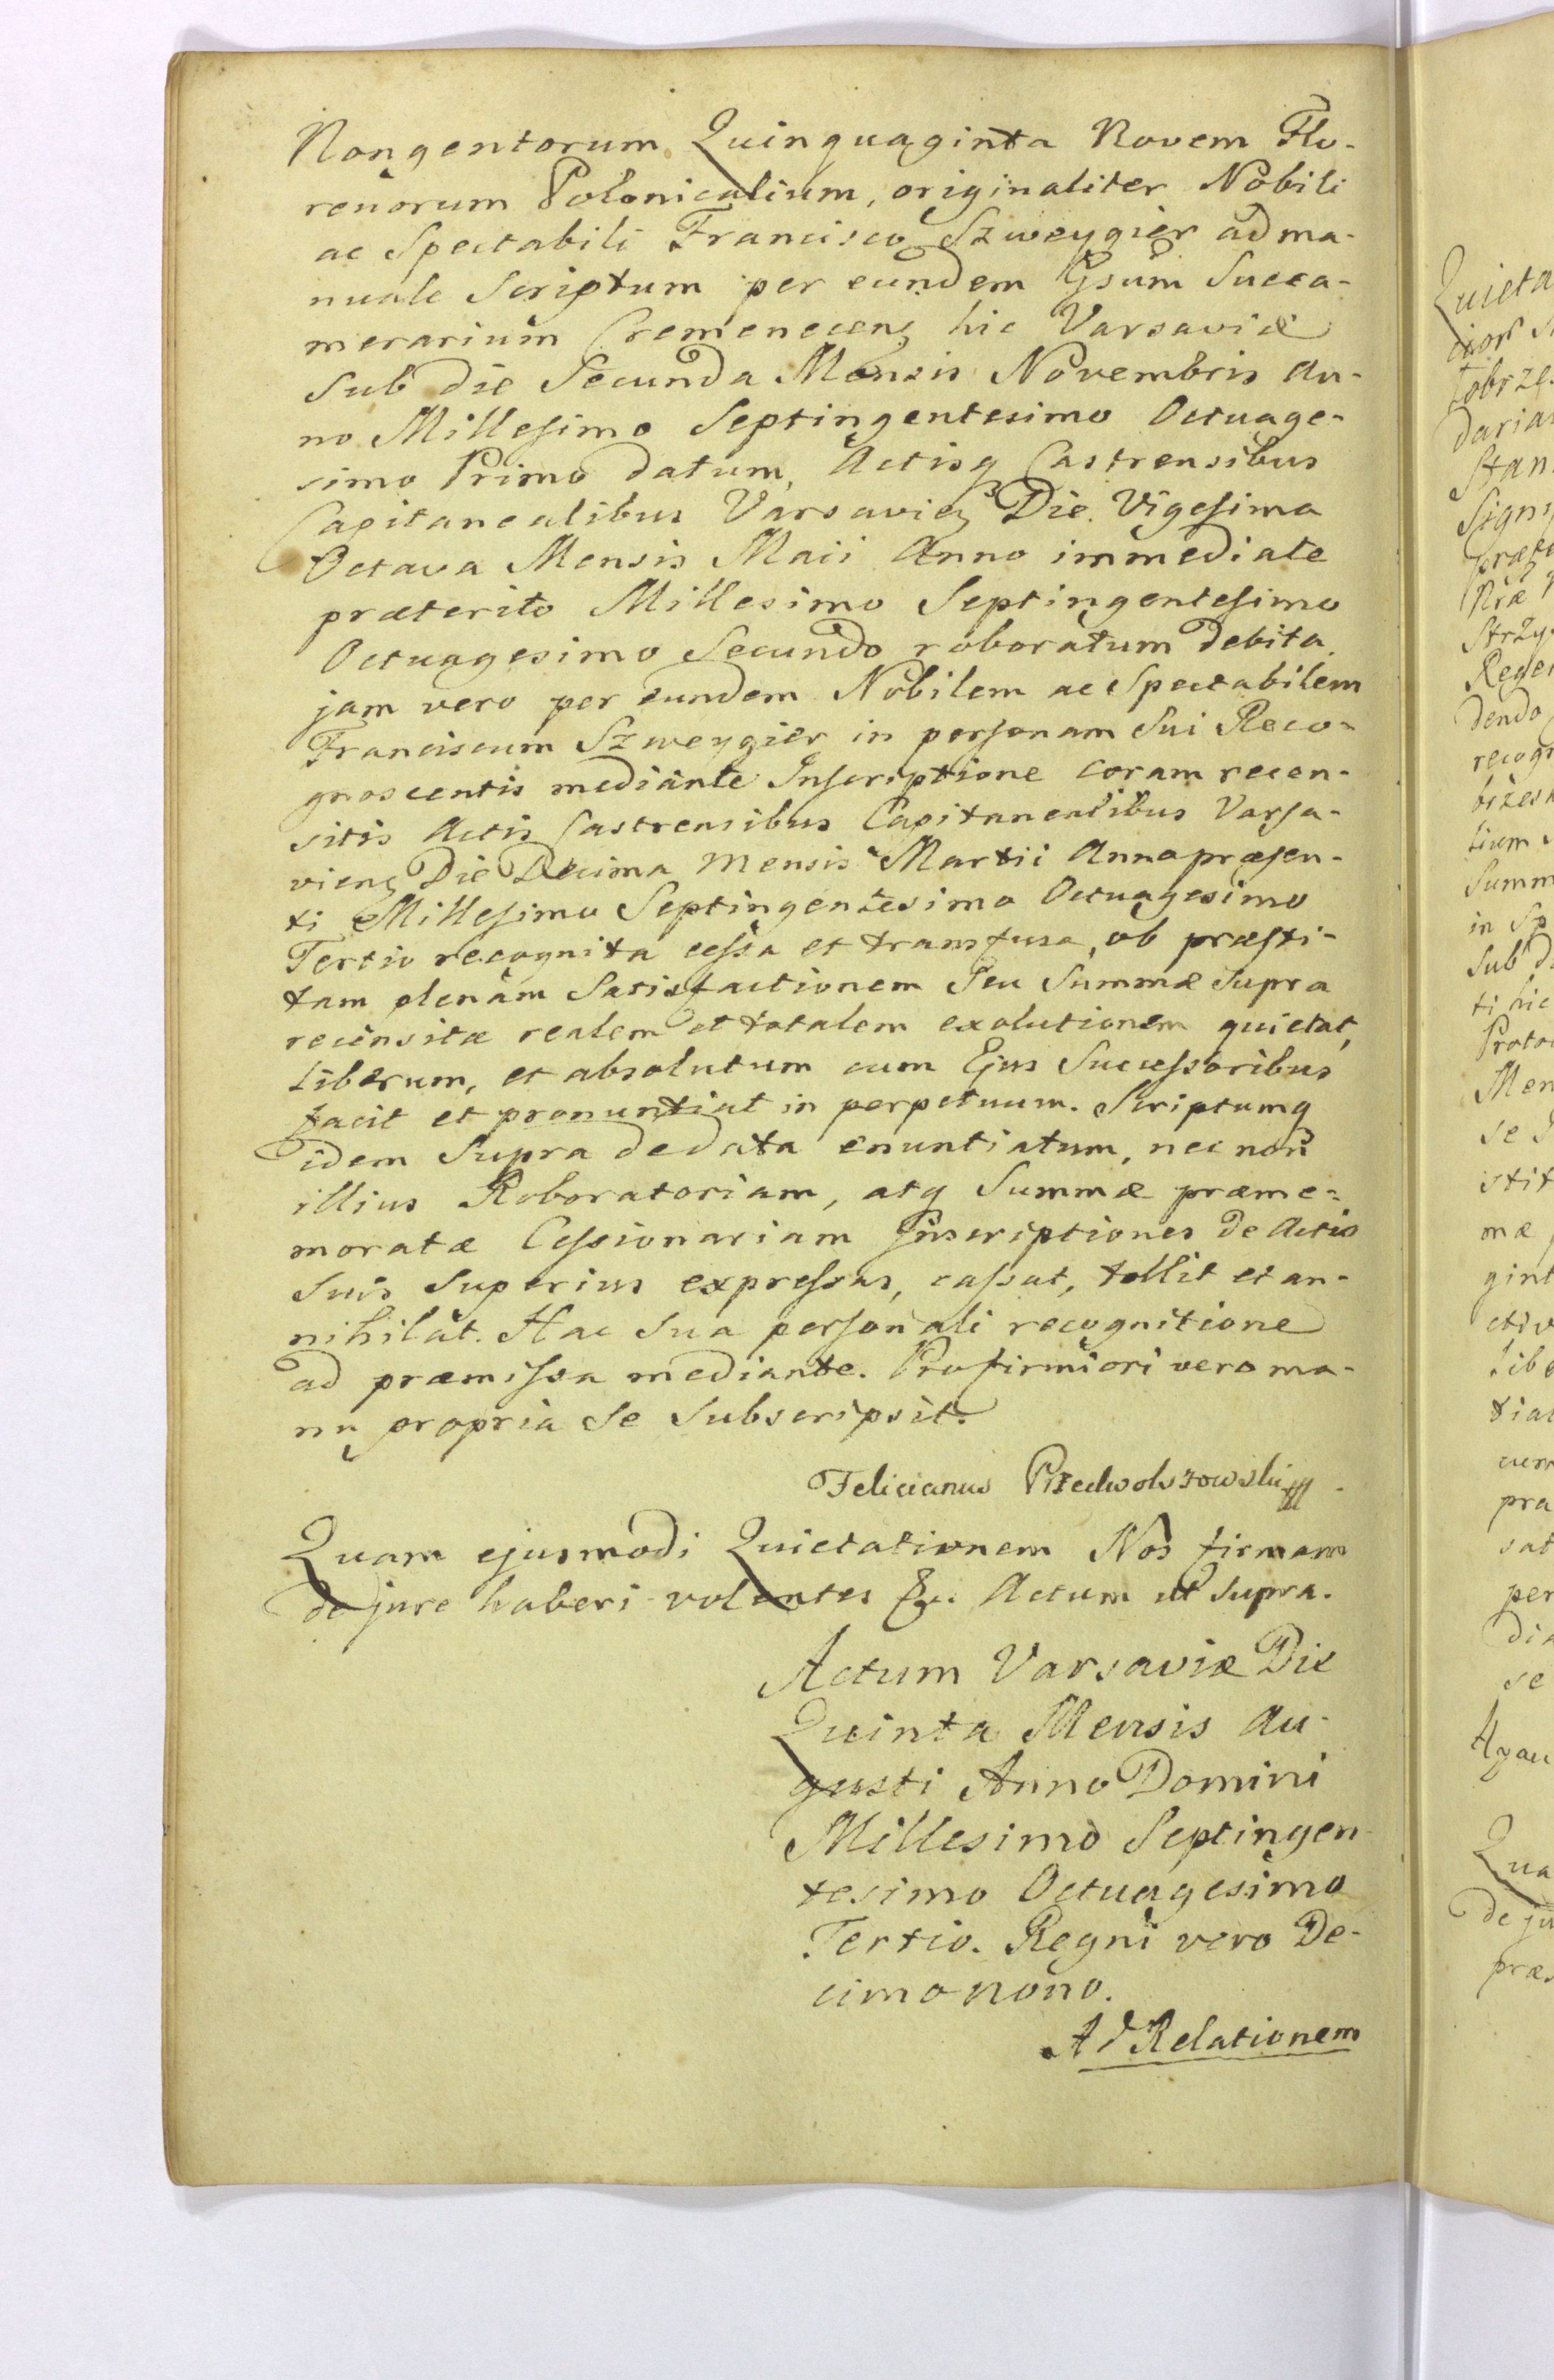 Nongentorum Quinquaginta Novem Flo-
renorum Polonicalium, originaliter Nobili
ac Spectabili Francisco Szweygier ad ma-
nuale Scriptum per eundem Gsum Succa-
merarium Cremenecens hic Varsaviæ
Sub die Secunda Mensis Novembris An-
no Millesimo Septingentesimo Octuage-
simo Primo datum, Actisq Castrensibus
Capitanealibus Varsavien Die Vigesima
Octava Mensis Maii Anno immediate
præterito Millesimo Septingentesimo
Octuagesimo Secundo roboratum debita.
jam vero per eundem Nobilem ac Spectabilem
Franciscum Szweygier in personam Sui Reco-
gnoscentis mediante Inscriptione coram recen-
sitis Actis Castrensibus Capitanealibus Varsa-
viens Die Decima Mensis Martii Anno præsen-
ti Millesimo Septingentesimo Octuagesimo
Tertio recognita cessa et transfusa, ob præsti-
tam plenam Satisfactionem Seu Summæ Supra
recensitæ realem et totalem exolutionem quietat,
liberum, et absolutum cum Ejus Successoribus
facit et pronuntiat in perpetuum. Scriptumq
idem Supra de data enuntiatum, nec non
illius Roboratoriam, atq Summæ præme-
moratæ Cessionariam Inscriptiones de Actis
Suis Superius expressas, cassat, tollit et an-
nihilat. Hac Sua personali recognitione
ad præmissa mediante. Pro firmiori vero ma-
nu propria Se Subscripsit.
Felicianus
Quam ejusmodi Quietationem Nos firmam
de jure haberi volentes &c. Actum ut Supra.
Actum Varsaviæ Die
Quinta Mensis Au-
gusti Anno Domini
Millesimo Septingen-
tesimo Octuagesimo
Tertio. Regni vero De-
cimo nono.
Ad Relationem